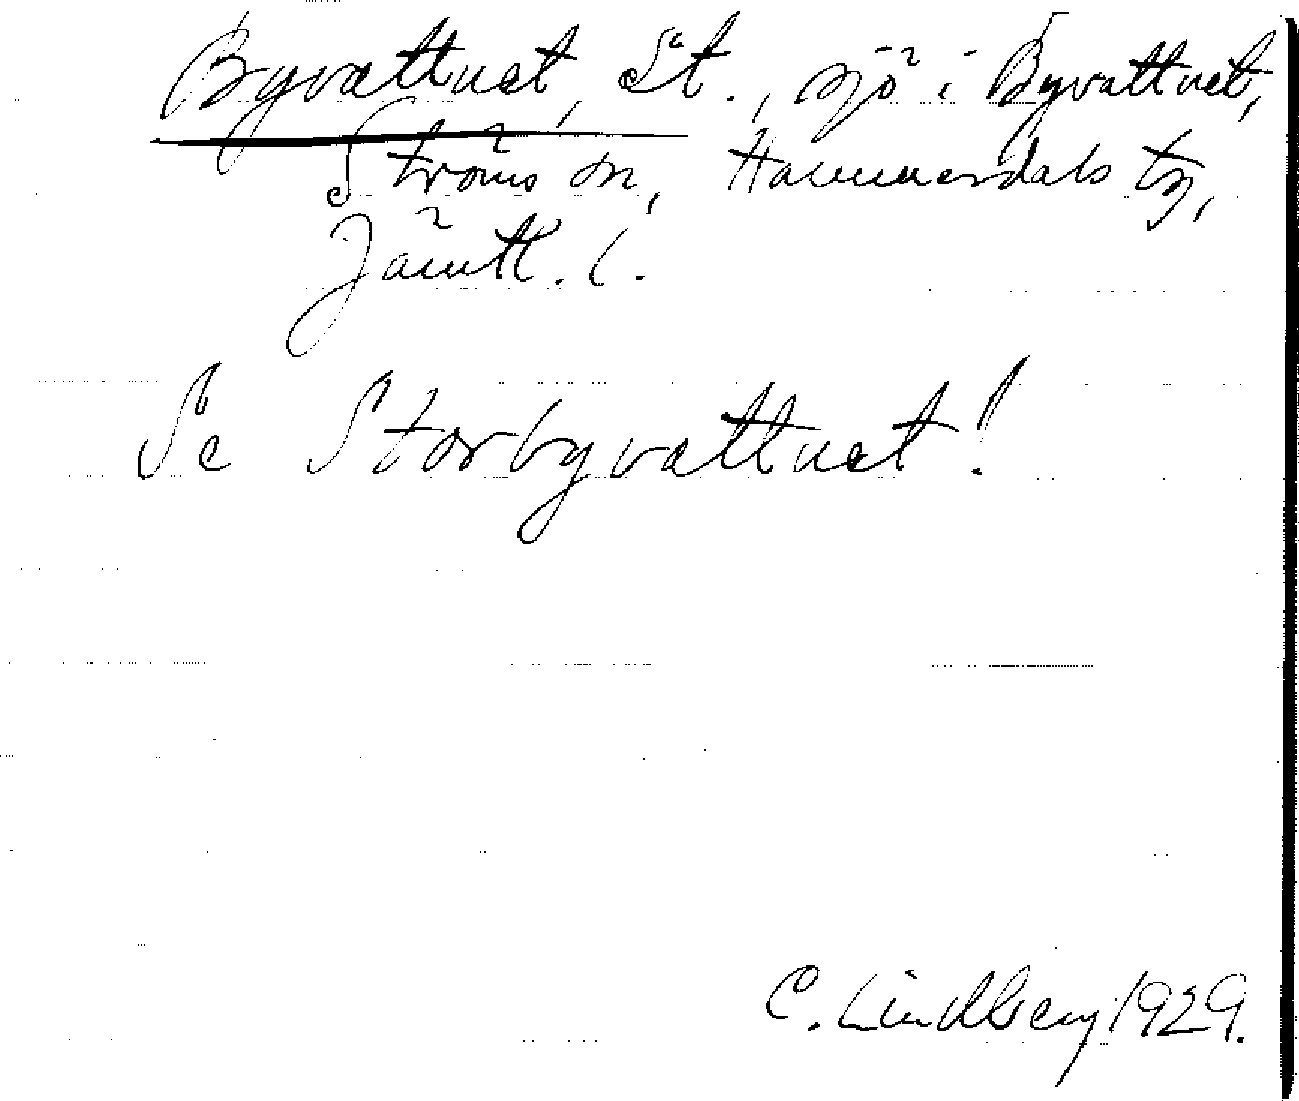 Byvattnet, St., sjö i Byvattnet,
Ströms sn, Hammerdals tg,
Jämtl. l.
Se Storbyvattnet!
C. Lindberg 1929.